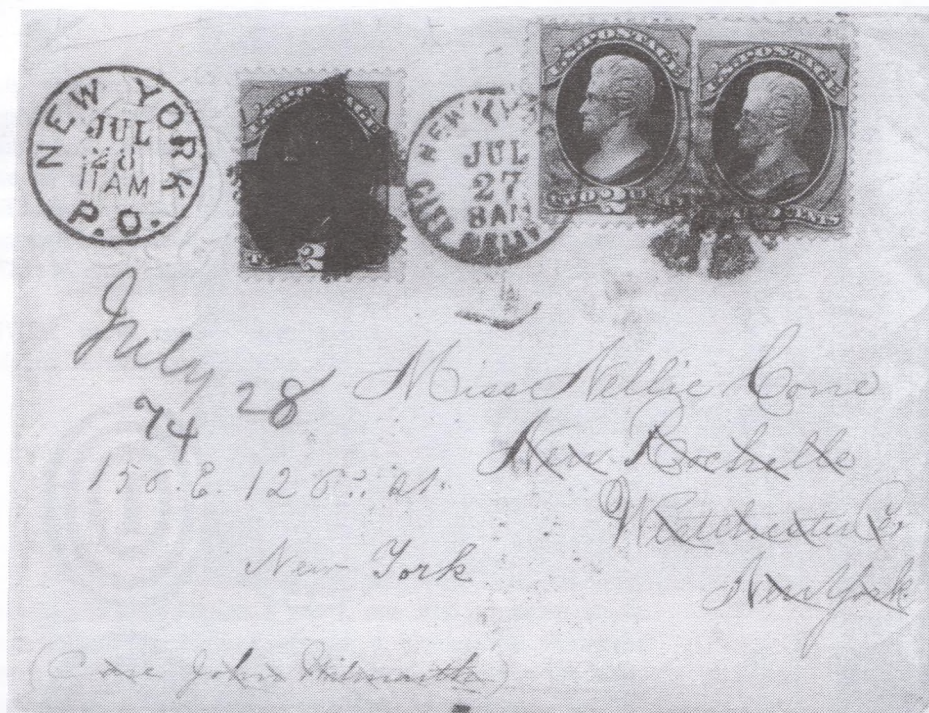 NEW YORK
JUL
28
11AM
P.O.
U.S. POSTAGE
2
NEW YORK
JUL
27
8AM
CITY DELIV
U.S. POSTAGE
TWO 2 CENTS
U.S. POSTAGE
CENTS
July 28
74
Miss Nellie Cone
New Rochelle
Westchester Co
New York
156. E. 126th St.
New York
(Care John